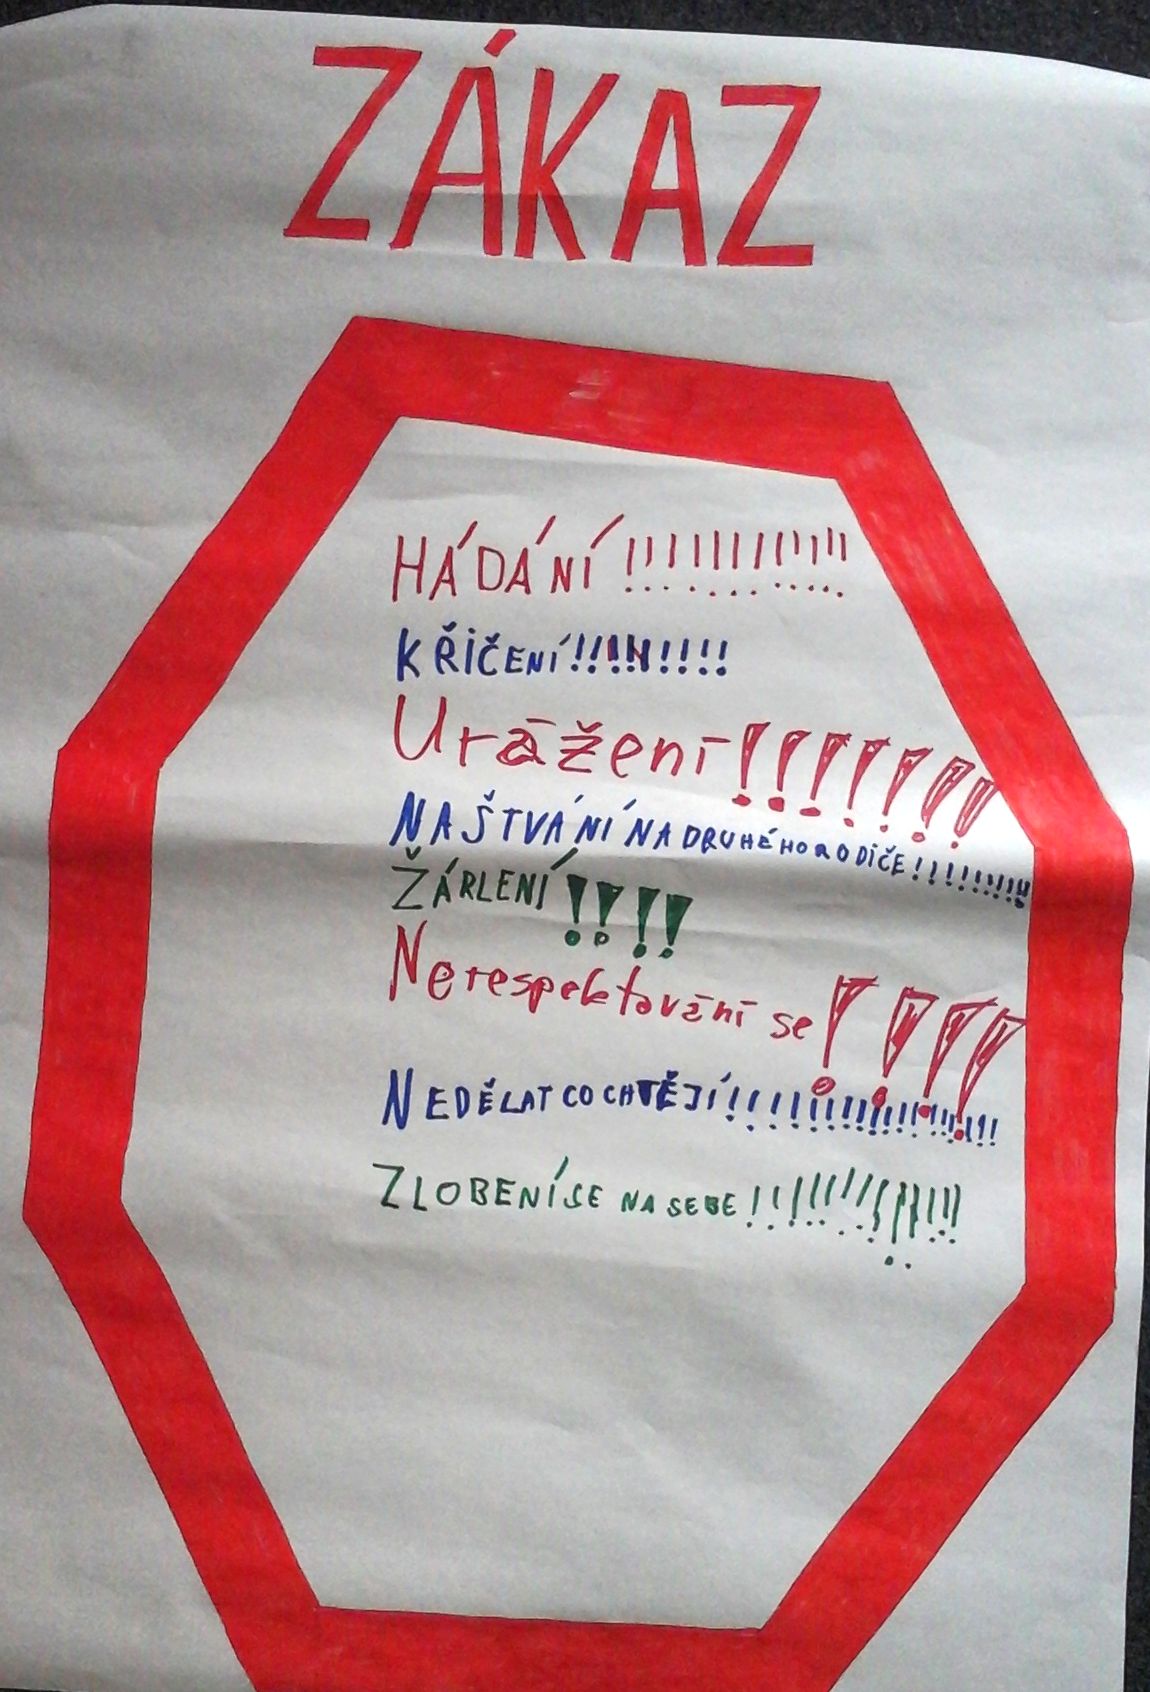 ZÁKAZ
HÁDÁNÍ !!!!!!!!!!!!!
KŘIČENÍ!!!!!!!!!
Urážení!!!!!!!
NAŠTVÁNÍ NA DRUHÉHO RODIČE!!!!!!!!!
ŽÁRLENÍ!!!!
Nerespektování se!!!!
NEDĚLAT CO CHTĚJÍ!!!!!!!!!!!!!!!!!!
ZLOBENÍ SE NA SEBE!!!!!!!!!!!!!!